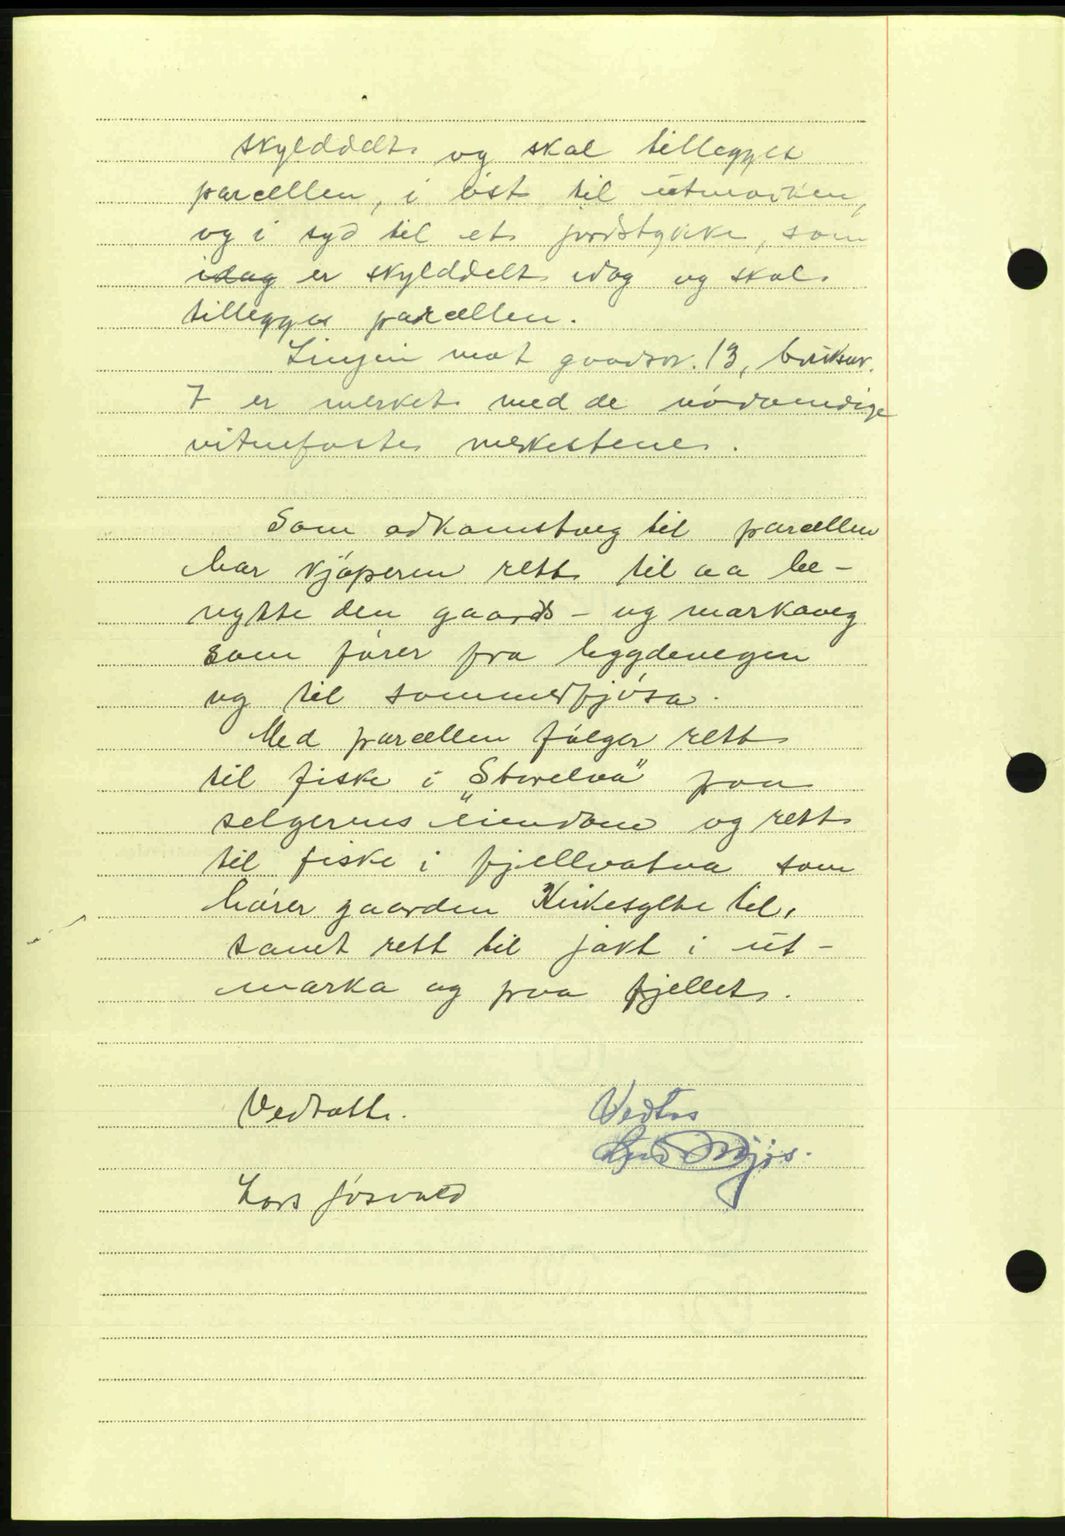 skylddelt og skal tillegges
parcellen, i øst til utmarken,
og i syd til et jordstykke, som
idag er skylddelt idag og skal
tillegges parcellen.
Linjen mot gaardsnr. 13, bruksnr.
7 er merket med de nödvendige
vitnefaste merkestene.
Som adkomstveg til parcellen
har kjöperen rett til aa be-
nytte den gaards- og markaveg
som förer fra bygdevegen
og til sommerfjösa.
Med parcellen fölger rett
til fiske i "Storelva" paa
selgerens eiendom og rett
til fiske i fjellvatna som
hörer gaarden Kirkesylte til,
samt rett til jakt i ut-
marka og paa fjellet.
Vedtatt. Vedtas
Lars Jösvold